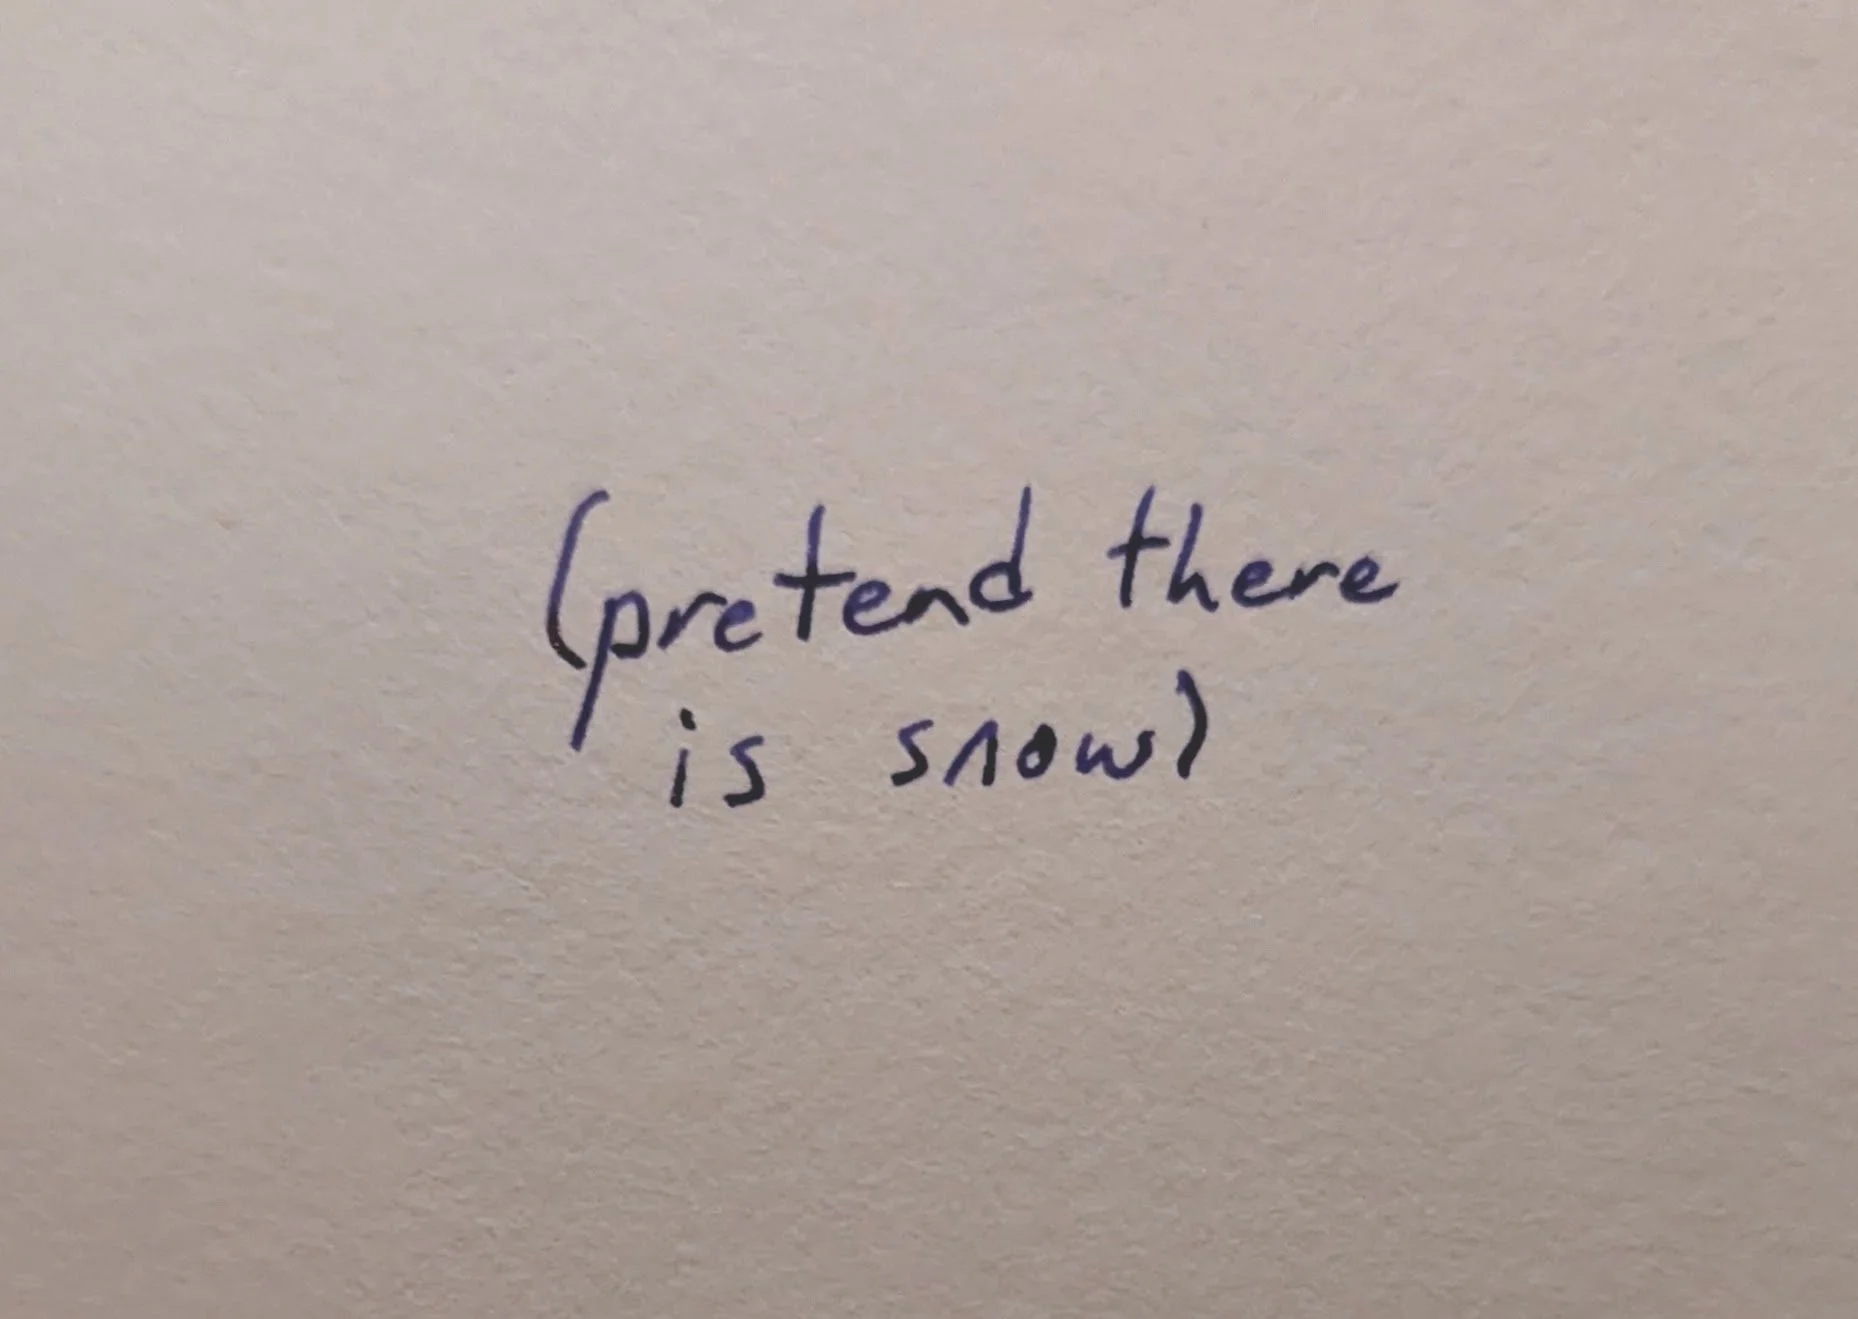 (pretend there
is snow)